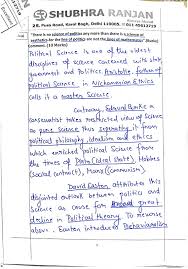 SHUBHRA RANJAN
"There is no science of politics any more than there is a science of aesthetics for the line of politics are not the lines of mathematics". Comment. (10 Marks)
Political Science is one of the oldest
disciplines of science concerned with state
government and Politics. Aristotle, father of
political science in Nichomachian Ethics
calls it a master Science.
Contrary, Edmund Burke a
conservative takes restricted view of Science
as pure science thus separating it from
political philosophy, idealism and ethics
which enriched Political Science from
the times of Plato (ideal state), Hobbes
(Social contract), Marx (Communism)
David Easton attributes this
disjointed outlook between politics and
Science as cause for great
decline in Political theory. To reverse
above, Easton introduced Behaviouralism